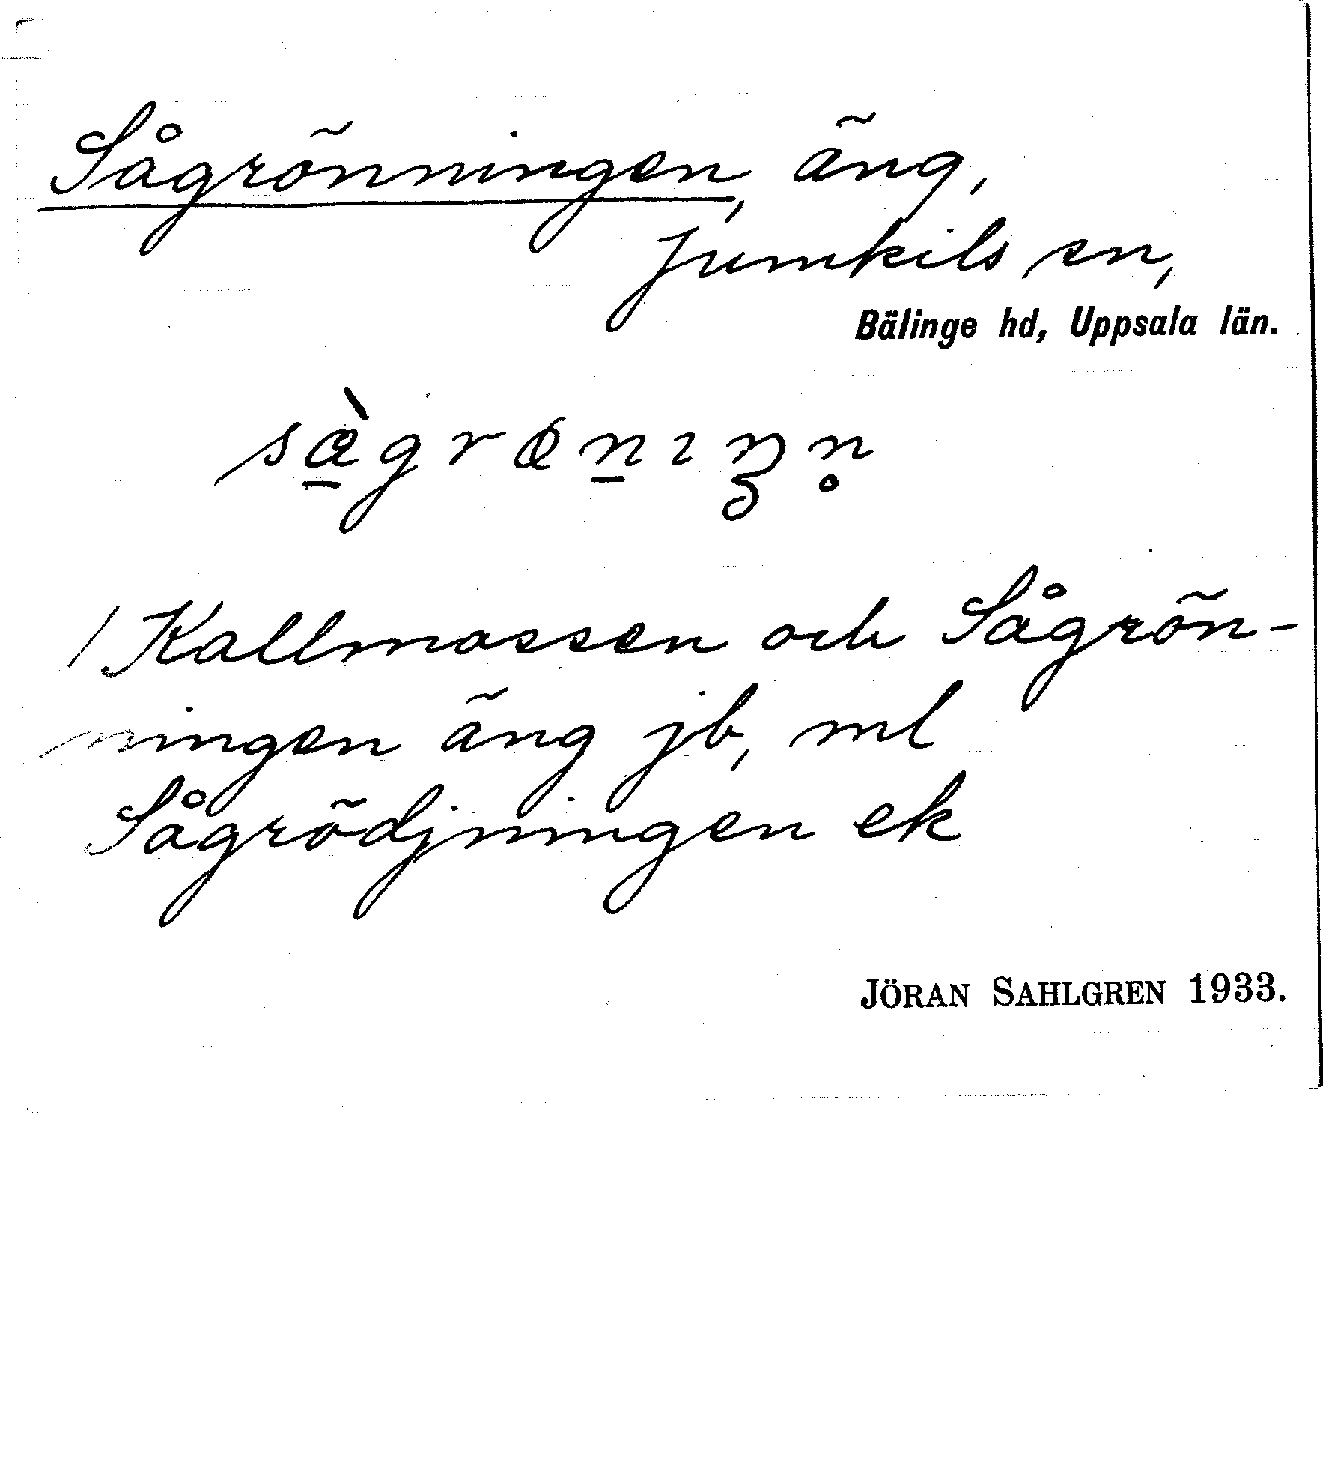 Sågrönningen, äng,
Jumkils sn,
Bälinge hd, Uppsala län.
/ Kallmossen och Sågrön-
ningen äng jb, ml
Sågrödjningen ek
JÖRAN SAHLGREN 1933.